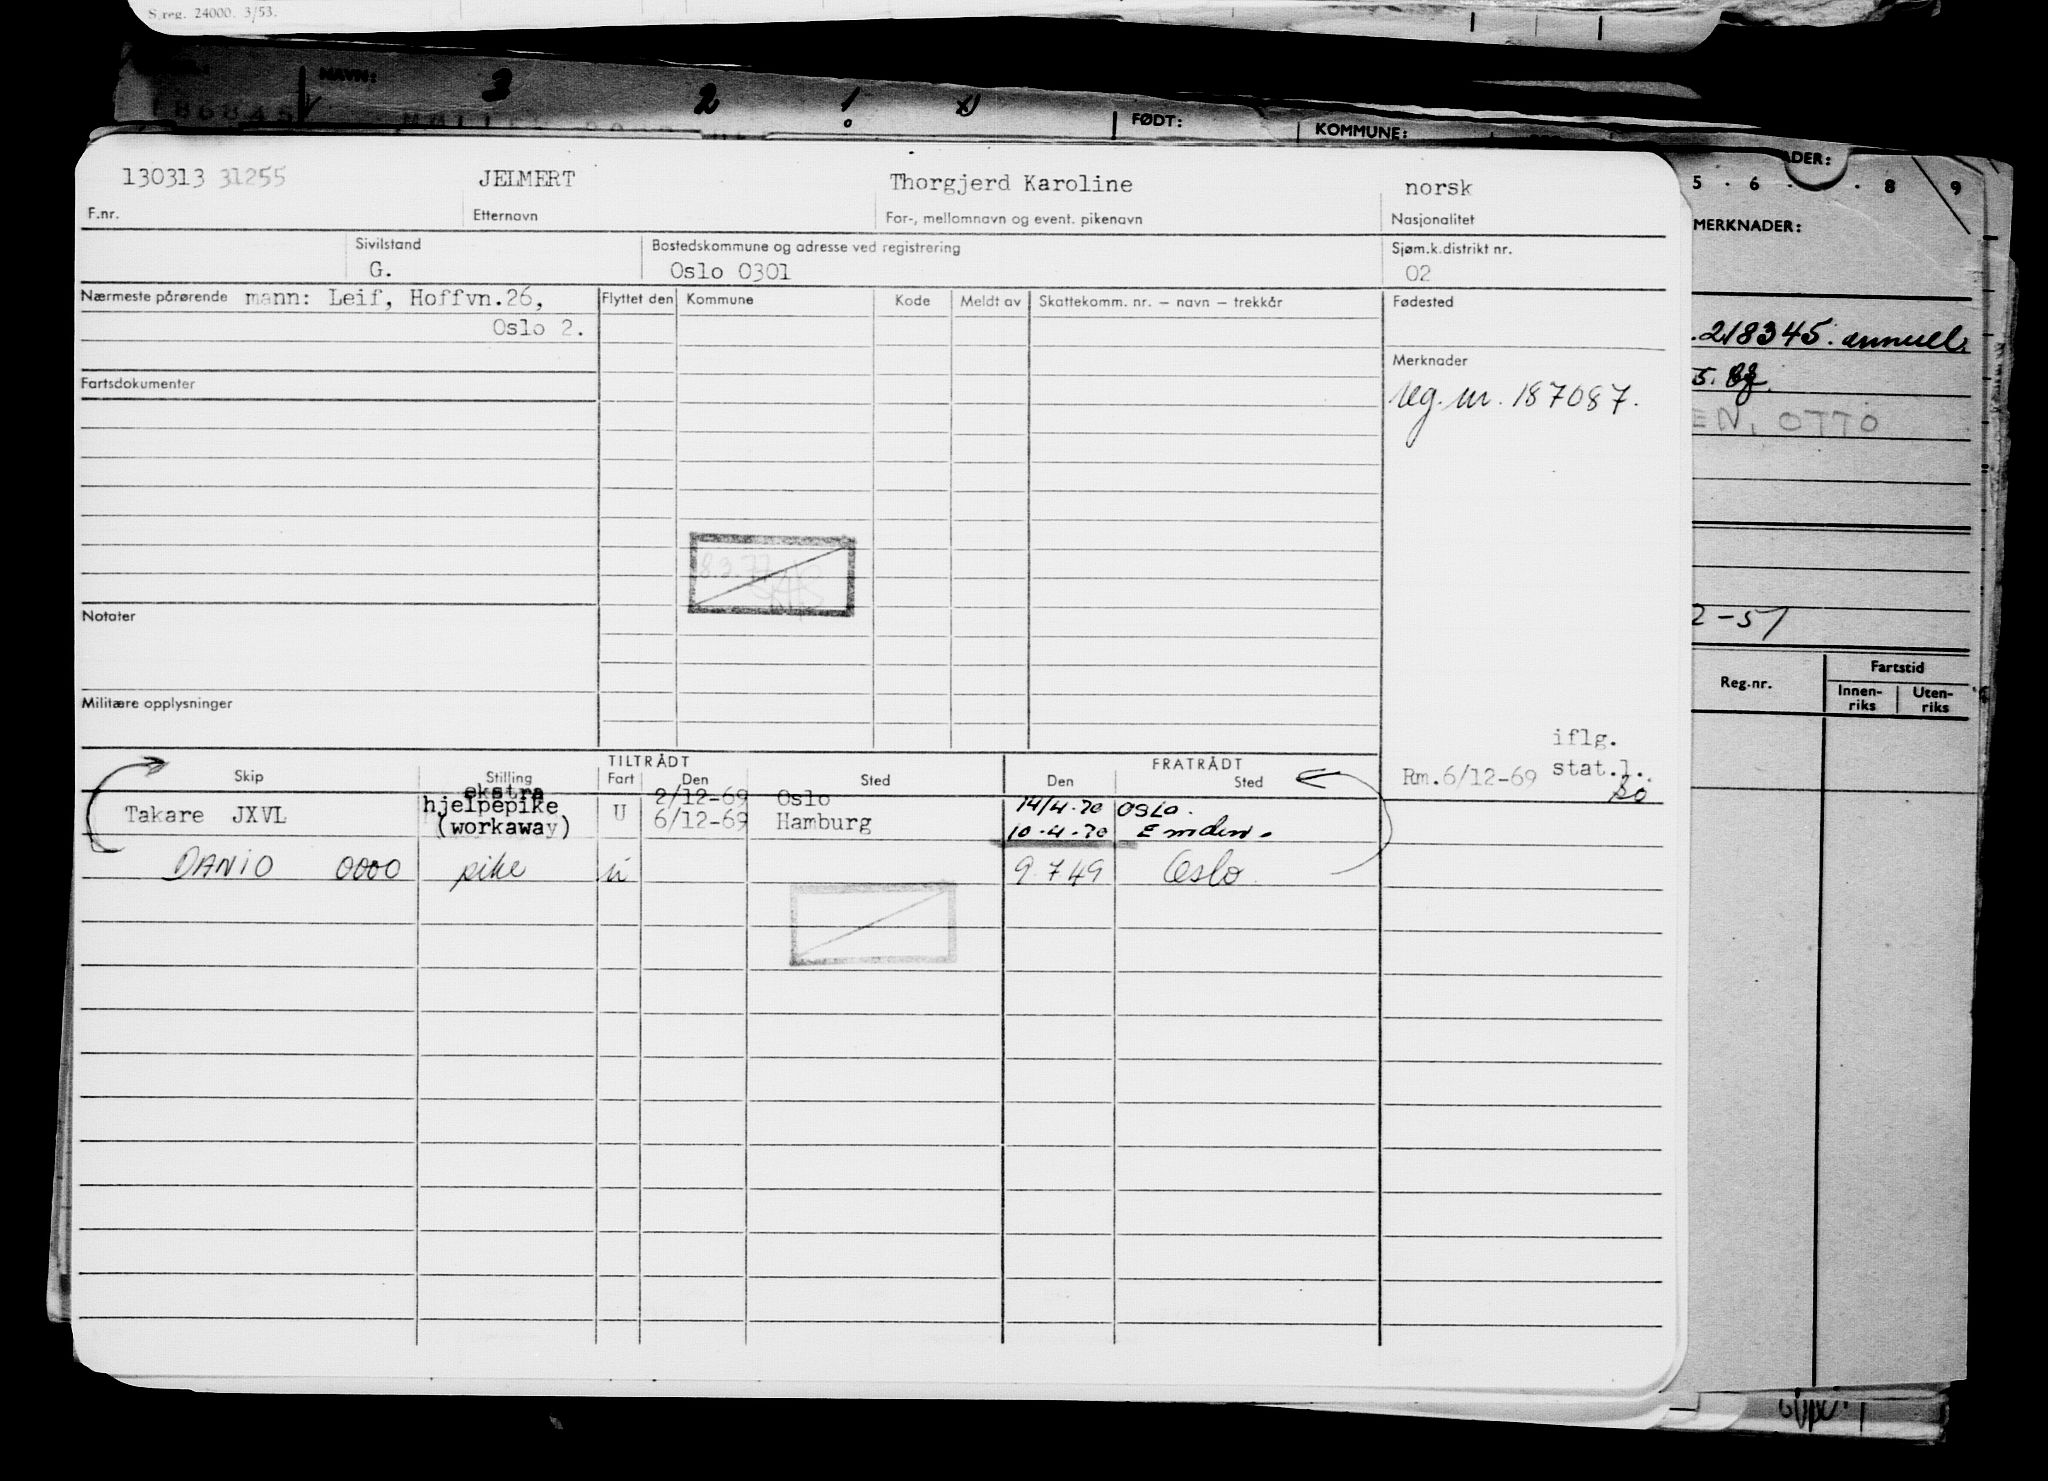 S.reg. 24000. 3/53.
NAVN: 3 2 1
FØDT: KOMMUNE:
130313 31255 JELMERT Thorgjerd Karoline norsk
F.nr. Etternavn For-, mellomnavn og event. pikenavn Nasjonalitet
Sivilstand Bostedskommune og adresse ved registrering Sjøm.k.distrikt nr.
G. Oslo 0301 02
Nærmeste pårørende mann: Leif, Hoffvn.26, Flyttet den Kommune Kode Meldt av Skattekomm. nr. — navn — trekkår Fødested
Oslo 2.
Fartsdokumenter Merknader
reg. nr. 187087.
8.3.77
Notater
Militære opplysninger
TILTRÅDT FRATRÅDT iflg.
Skip Stilling Fart Den Sted Den Sted Rm.6/12-69 stat.l.
ekstra 2/12-69 Oslo 14/4.70 OSLO.
Takare JXVL hjelpepike U
(workaway) 6/12-69 Hamburg 10.4.70 Emden.
DANIO 0000 pike u 9.7 49 Oslo
DER:
5 . 6 . . 8 9
MERKNADER:
.218345. annuel.
5.
EN, OTTO
2-51
Reg.nr. Fartstid
Innen-riks Uten-riks